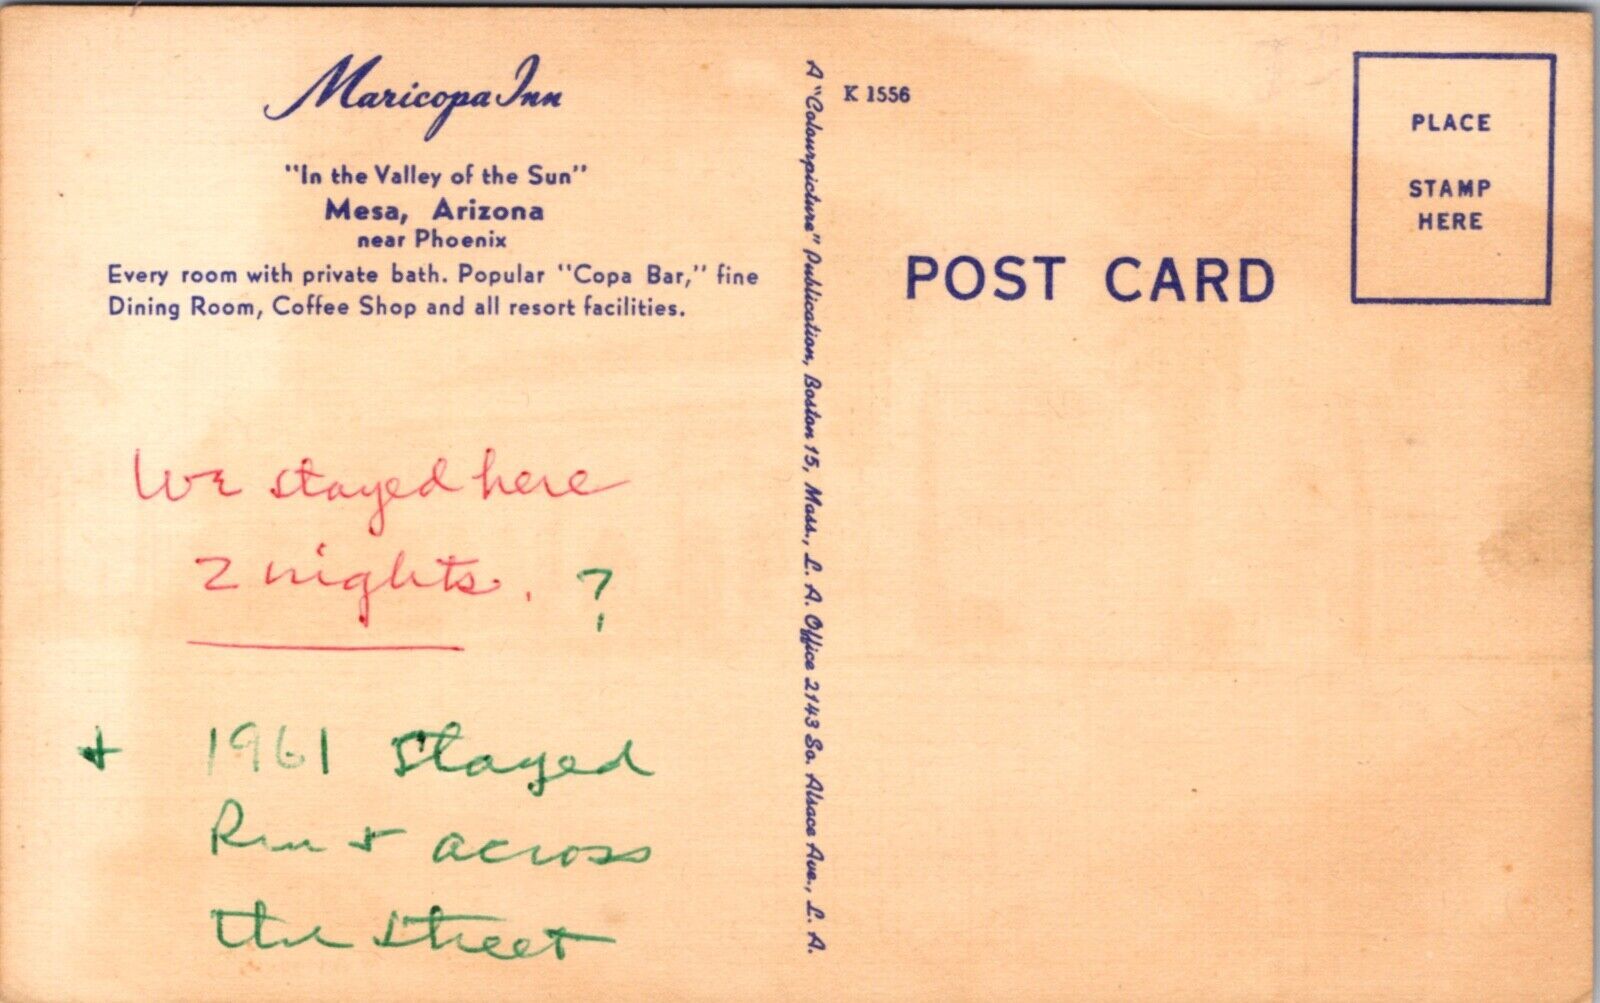 Maricopa Inn
"In the Valley of the Sun"
Mesa, Arizona
near Phoenix
Every room with private bath. Popular "Copa Bar," fine
Dining Room, Coffee Shop and all resort facilities.
We stayed here
2 nights. ?
+ 1961 stayed
across
the street
A "Colourpicture" Publication, Boston 15, Mass., L. A. Office 2143 So. Alsace Ave., L. A.
K 1556
POST CARD
PLACE
STAMP
HERE